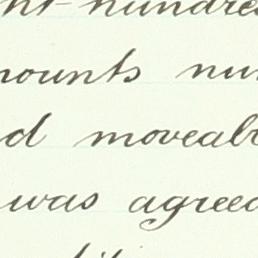 ht-hundred
mounts num
d moveabl
was agreed